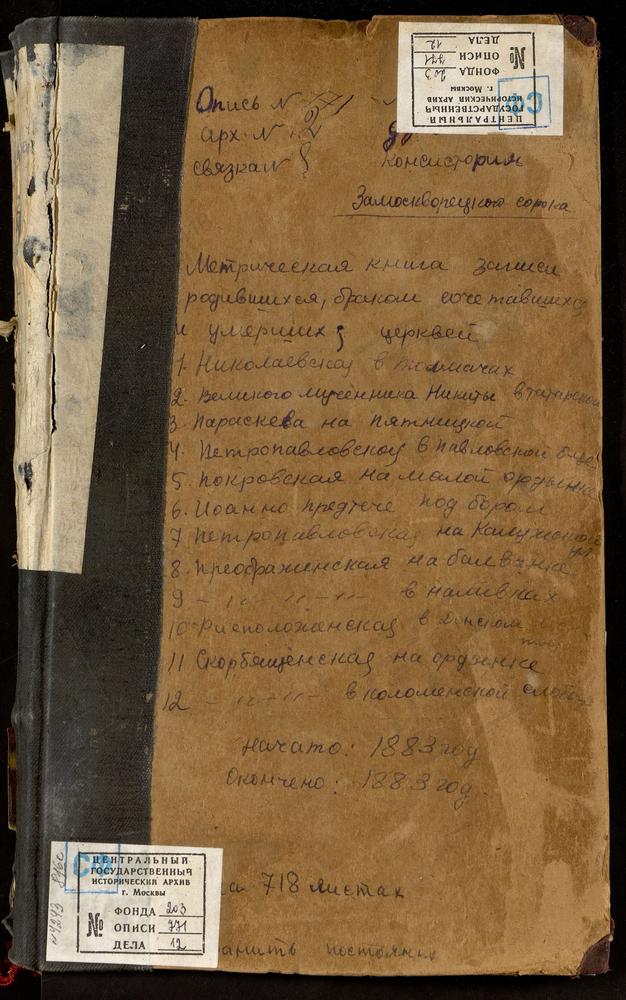 ЦЕНТРАЛЬНЫЙ
ГОСУДАРСТВЕННЫЙ
ИСТОРИЧЕСКИЙ АРХИВ
г. Москвы
№
ФОНДА 203
ОПИСИ 771
ДЕЛА 12
Опись № 771
арх. № 2
связка №
Консистория
Замоскворецкого сорока
Метрическая книга записи
родившихся, браком сочетавшихся
и умерших церквей
1. Николаевской в толмачах
2. Великого мученника Никиты в татарской
3. Параскева на пятницкой
4. Петропавловской в павловской
5. Покровская на малой ордынке
6. Иоанно предтече под бором
7 Петропавловская на Калужской
8. Преображенская на балванке
9 - " - " - " - в наливках
10. Рисположенская в Донском
11 Скорбященская на ордынке
12 - " - " - в коломенской слободе
Начато: 1883 год
Окончено: 1883 год.
718 листах
ЦЕНТРАЛЬНЫЙ
ГОСУДАРСТВЕННЫЙ
ИСТОРИЧЕСКИЙ АРХИВ
г. Москвы
№
ФОНДА 203
ОПИСИ 771
ДЕЛА 12
хранить постоянно